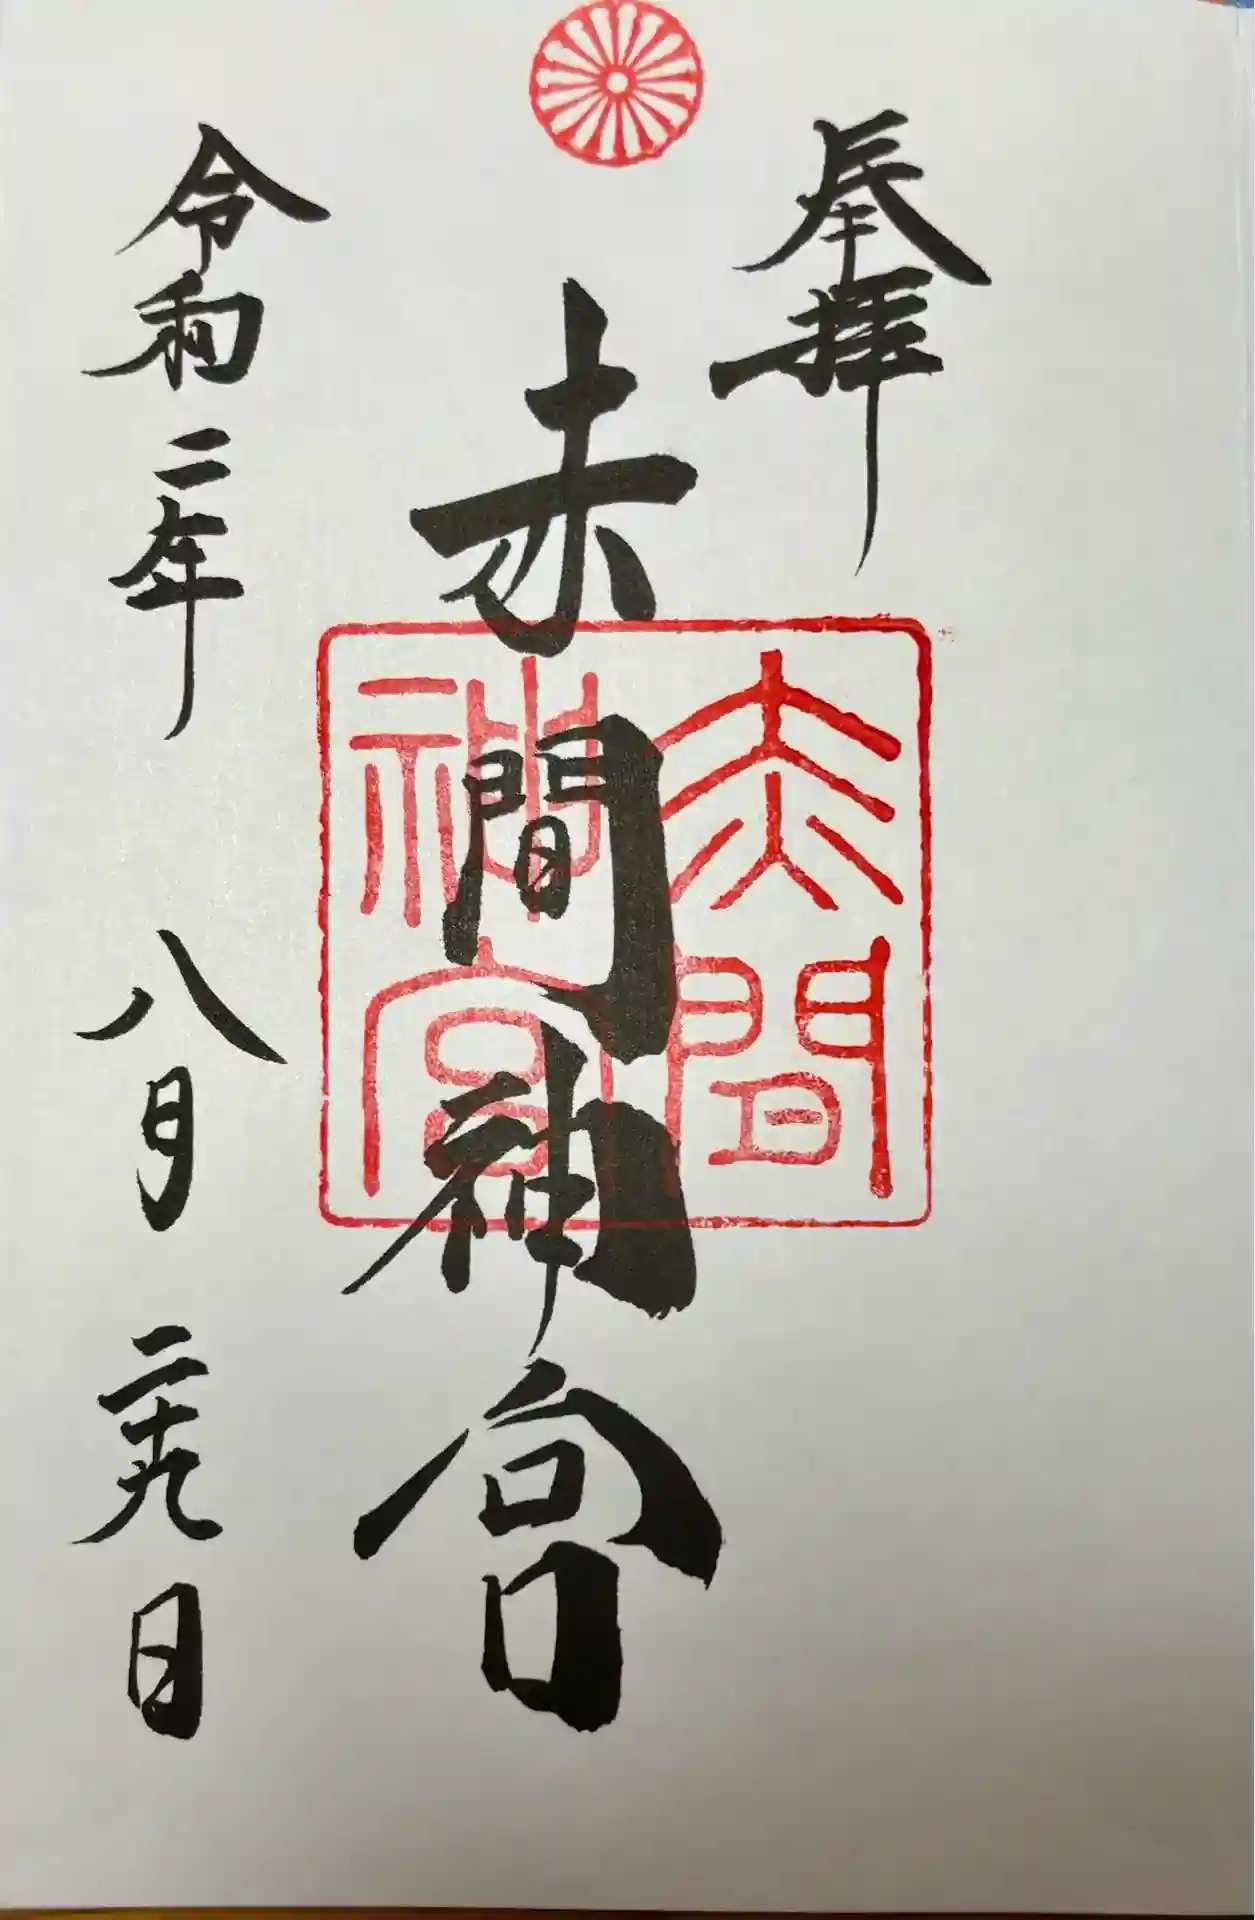 奉拝
赤間神宮
赤間
神宮
令和二年八月二十九日